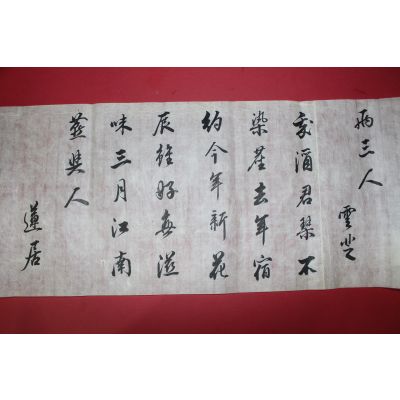 兩三人 雲
我酒君琴不
染塵去年宿
約今年新花
辰雖好無滋
味三月江南
燕與人
蓮居